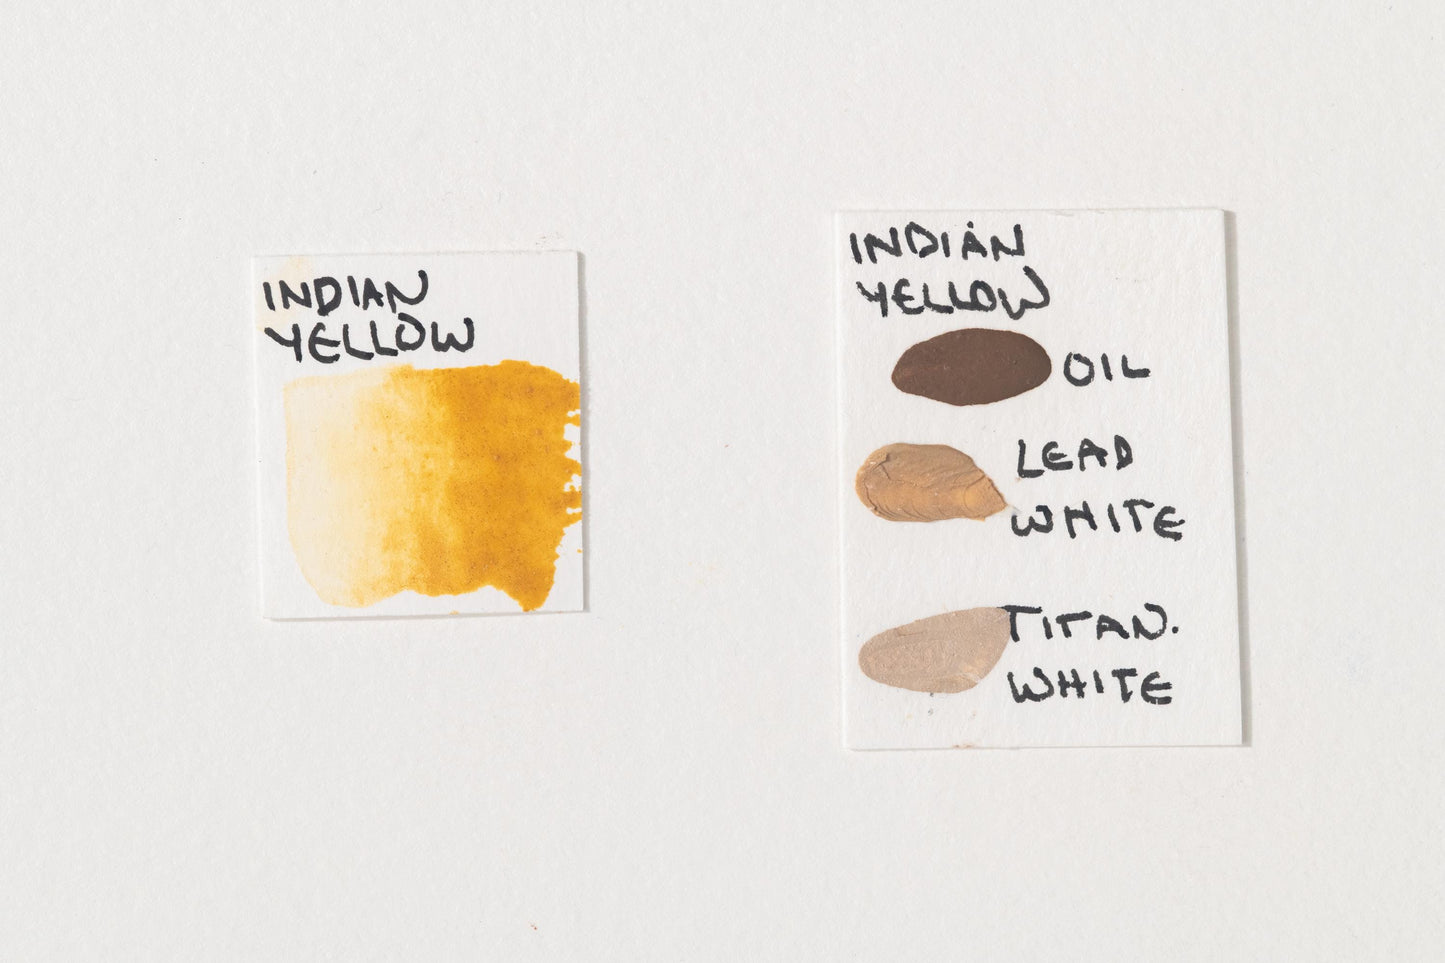 INDIAN
YELLOW
INDIAN
YELLOW
OIL
LEAD
WHITE
TITAN.
WHITE